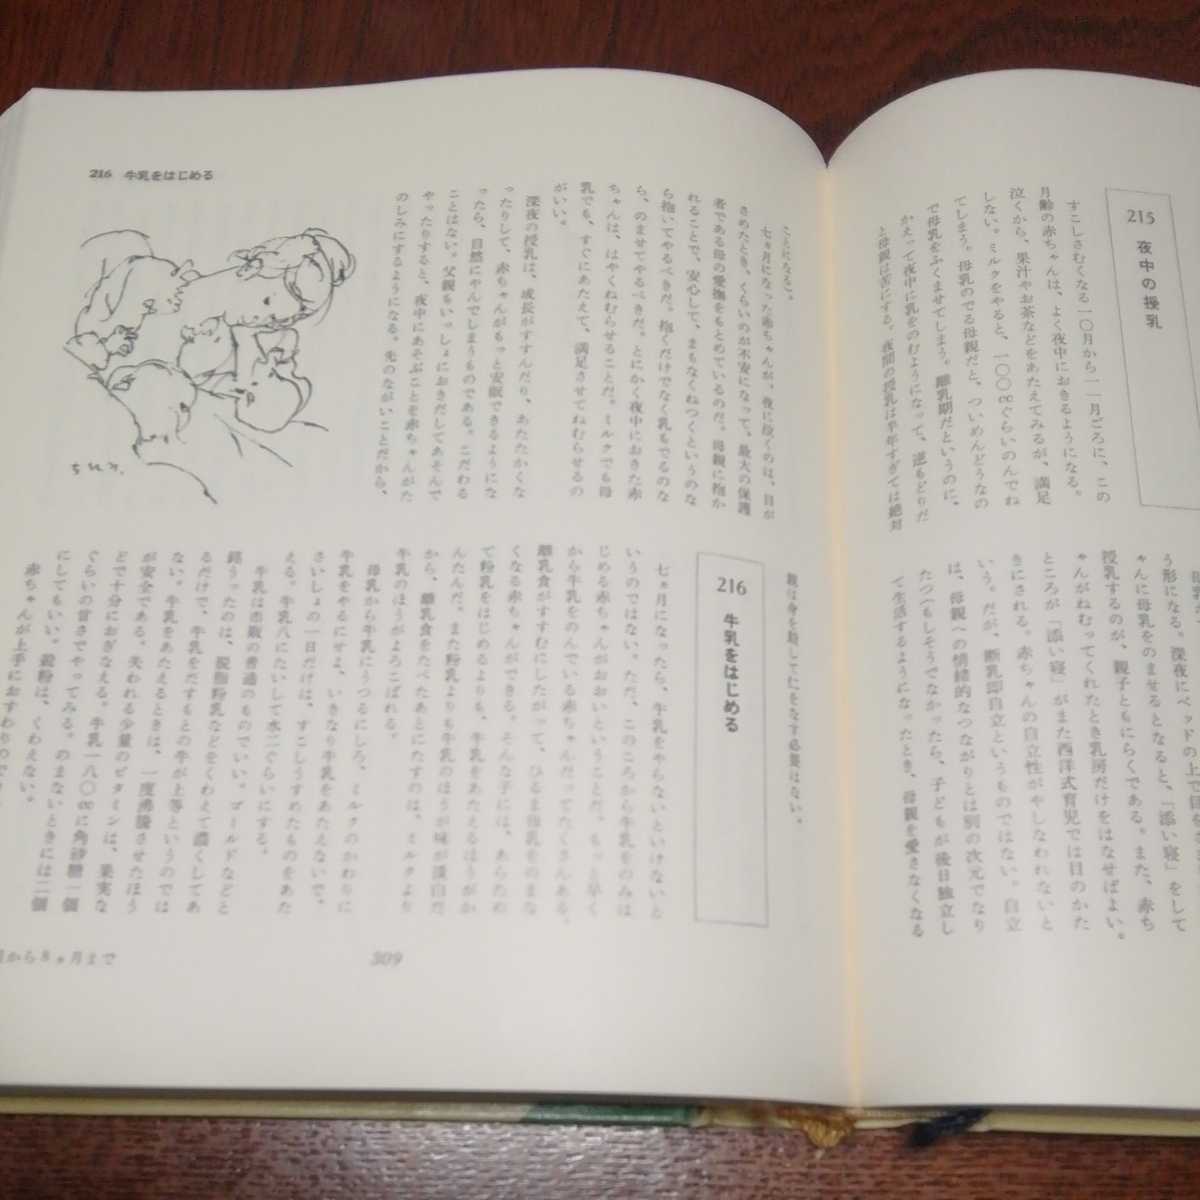 215 夜中の授乳
すこしさむくなる一〇月から一一月ごろに、この
月齢の赤ちゃんは、よく夜中におきるようになる。
泣くから、果汁やお茶などをあたえてみるが、満足
しない。ミルクをやると、一〇〇ccぐらいのんでね
てしまう。母乳のでる母親だと、ついめんどうなの
で母乳をふくませてしまう。離乳期だというのに、
かえって夜中に乳をのむようになって、逆もどりだ
と母親は苦にする。夜間の授乳は半年すぎては絶対
う形になる。深夜にベッドの上で目を
ゃんに母乳をのませるとなると、「添い寝」をして
授乳するのが、親子ともにらくである。また、赤ち
ゃんがねむってくれたとき乳房だけをはなせばよい。
ところが「添い寝」がまた西洋式育児では目のかた
きにされる。赤ちゃんの自立性がやしなわれないと
いう。だが、断乳即自立というものではない。自立
は、母親への情緒的なつながりとは別の次元でなり
たつ（もしそうでなかったら、子どもが後日独立し
て生活するようになったとき、母親を愛さなくなる
216 牛乳をはじめる
ことになる）。
七ヵ月になった赤ちゃんが、夜に泣くのは、目が
さめたとき、くらいのが不安になって、最大の保護
者である母の愛撫をもとめているのだ。母親に抱か
れることで、安心して、まもなくねつくというのな
ら抱いてやるべきだ。抱くだけでなく乳もでるのな
ら、のませてやるべきだ。とにかく夜中におきた赤
ちゃんは、はやくねむらせることだ。ミルクでも母
乳でも、すぐにあたえて、満足させてねむらせるの
がいい。
深夜の授乳は、成長がすすんだり、あたたかくな
ったりして、赤ちゃんがもっと安眠できるようにな
ったら、自然にやんでしまうものである。こだわる
ことはない。父親もいっしょにおきだしてあそんで
やったりすると、夜中にあそぶことを赤ちゃんがた
のしみにするようになる。先のながいことだから、
ちひろ
親は身を殺して仁をなす必要はない。
216 牛乳をはじめる
七ヵ月になったら、牛乳をやらないといけないと
いうのではない。ただ、このころから牛乳をのみは
じめる赤ちゃんがおおいということだ。もっと早く
から牛乳をのんでいる赤ちゃんだってたくさんある。
離乳食がすすむにしたがって、ひるま母乳をのまな
くなる赤ちゃんができる。そんな子には、あらたね
て粉乳をはじめるよりも、牛乳をあたえるほうがか
んたんだ。また粉乳よりも牛乳のほうが味が淡白だ
から、離乳食をたべたあとにたすのは、ミルクより
牛乳のほうがよろこばれる。
母乳から牛乳にうつるにしろ、ミルクのかわりに
牛乳をやるにせよ、いきなり牛乳をあたえないで、
さいしょの一日だけは、すこしうすめたものをあた
える。牛乳八にたいして水二ぐらいにする。
牛乳は市販の普通のものでいい。ゴールドなどと
銘うったのは、脱脂粉乳などをくわえて濃くしてあ
るだけで、牛乳をだすもとの牛が上等というのでは
ない。牛乳をあたえるときは、一度沸騰させたほう
が安全である。失われる少量のビタミンは、果実な
どで十分におぎなえる。牛乳一八〇ccに角砂糖一個
ぐらいの甘さでやってみる。のまないときには二個
にしてもいい。穀粉は、くわえない。
赤ちゃんが上手におすわりので
から8ヵ月まで
309